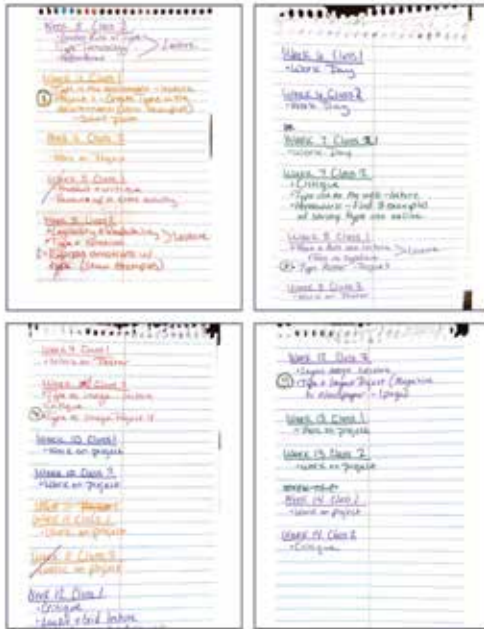 Week 3 Class 2
Type
Lecture
Week 4 Class 1
Type in the environment - lecture
Project 2 - Create Type in the
environment (Show Examples)
Week 4 Class 2
Work on Project
Week 5 Class 1
Week 5 Class 2
Legibility & Readability
Type &
Lecture
Express emotions w/
type (Show examples)
Week 6 Class 1
Work Day
Week 6 Class 2
Work Day
Week 7 Class 1
Work Day
Week 7 Class 2
Critique
Type on the web - lecture
Homework - Find 3 examples
of strong type use online
Week 8 Class 1
Lecture
Type Poster - Project
Week 8 Class 2
Work on Poster
Week 9 Class 1
Work on Poster
Week 9 Class 2
Type as image - lecture
Critique
Type as Image Project
Week 10 Class 1
Work on project
Week 10 Class 2
Work on project
Week 11 Class 1
Work on project
Week 11 Class 2
Work on project
Week 12 Class 1
Critique
Layout & Grid lecture
Week 12 Class 2
Layout design lecture
Type & Layout Project (Magazine
Newspaper - 4 pages)
Week 13 Class 1
Work on project
Week 13 Class 2
Work on project
Week 14 Class 1
Work on project
Week 14 Class 2
Critique